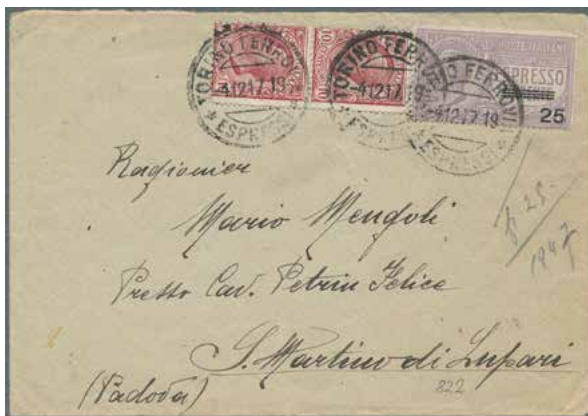 TORINO FERROVIA
-4.12.17.19
* ESPRESSI *
TORINO FERROVIA
-4.12.17. 19
* ESPRESSI *
TORINO FERROVIA
-4.12.17.19
ESPRESSI *
10
ESPRESSO
25
Ragionier
Mario Mengoli
Presso Cav. Petrin Felice
S. Martino di Lupari
(Padova)
822
25-